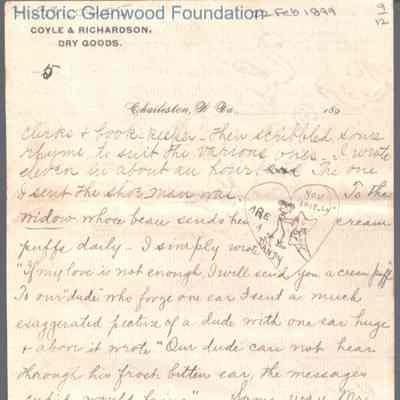 Historic Glenwood Foundation
12 Feb 1899
9/12
COYLE & RICHARDSON,
DRY GOODS.
5
Charleston, W. Va. 189
clerks & book-keeper - then scribbled some
rhyme to suit the various ones - I wrote
eleven in about an hour. The one
I sent the shoe man was. To the
YOU
ARE
A
DANDY
widow whose beau sends her cream
puffs daily - I simply wrote
"If my love is not enough, I will send you a cream puff"
To our "dude" who froze one ear I sent a much
exaggerated picture of a dude with one ear huge
& above it wrote "Our dude can not hear
through his frost bitten ear, the messages